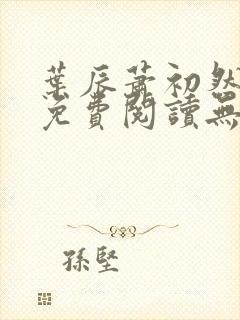 葉辰蕭初然
免費閱讀無
孫堅